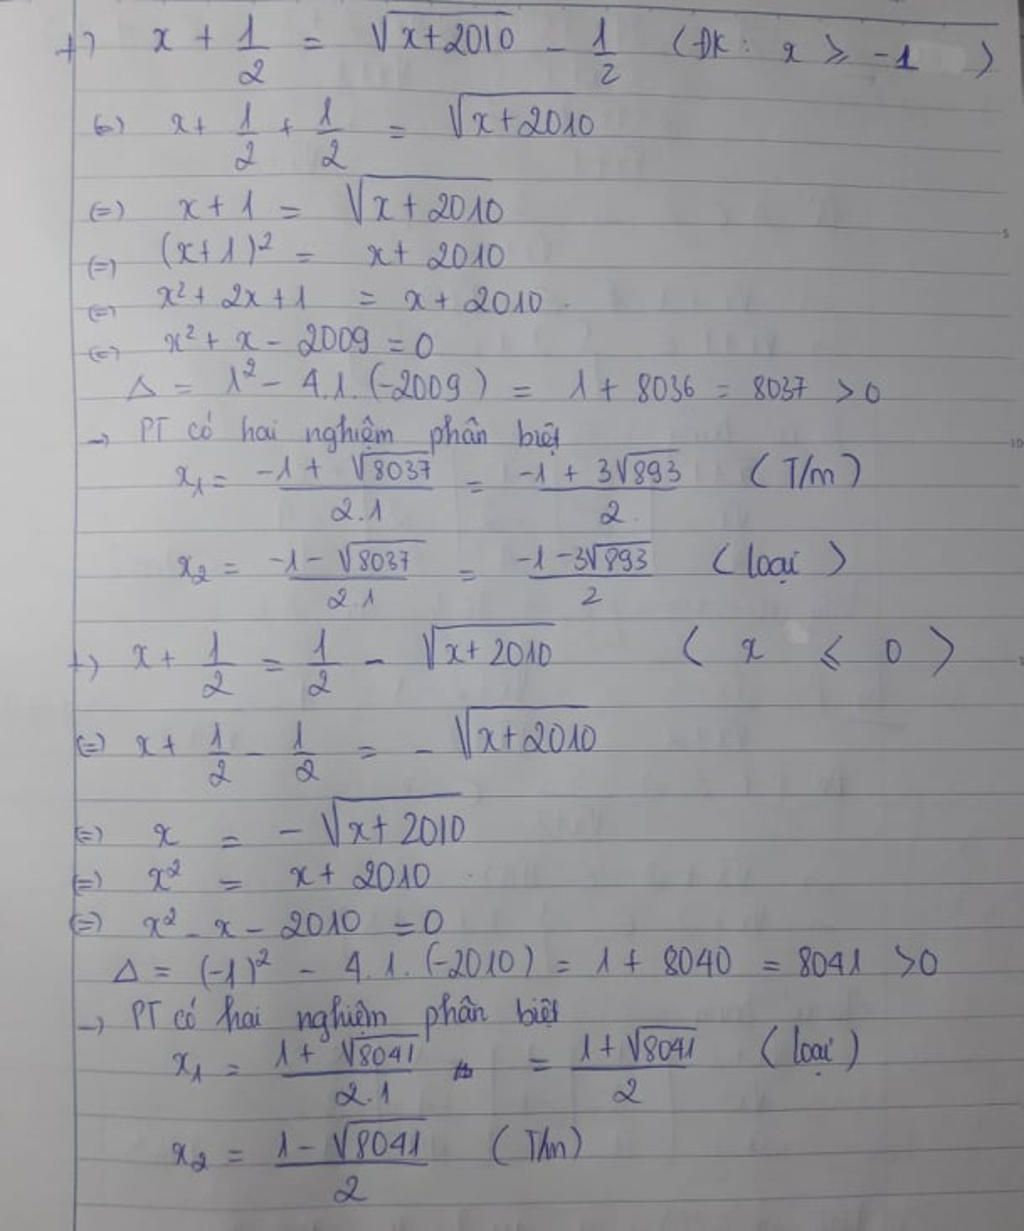 +) x + 1/2 = √(x+2010) - 1/2 (ĐK: x ≥ -1)
(=) x + 1/2 + 1/2 = √(x+2010)
(=) x + 1 = √(x+2010)
(=) (x+1)² = x + 2010
(=) x² + 2x + 1 = x + 2010.
(=) x² + x - 2009 = 0
Δ = 1² - 4.1.(-2009) = 1 + 8036 = 8037 > 0
→ PT có hai nghiệm phân biệt
x₁ = (-1 + √8037)/2.1 = (-1 + 3√893)/2 (T/m)
x₂ = (-1 - √8037)/2.1 = (-1 - 3√893)/2 (loại)
+) x + 1/2 = 1/2 - √(x+2010) (x ≤ 0)
(=) x + 1/2 - 1/2 = - √(x+2010)
(=) x = - √(x+2010)
(=) x² = x + 2010
(=) x² - x - 2010 = 0
Δ = (-1)² - 4.1.(-2010) = 1 + 8040 = 8041 > 0
→ PT có hai nghiệm phân biệt
x₁ = (1 + √8041)/2.1 = (1 + √8041)/2 (loại)
x₂ = (1 - √8041)/2 (T/m)